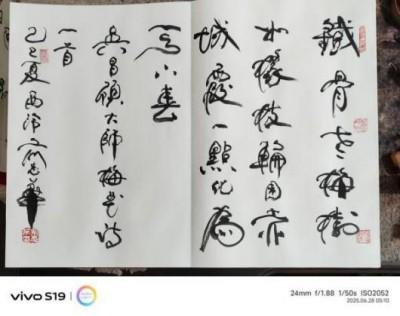 鐵骨老梅樹
如椽枝輪囷赤
城霞一點化為
万小春
吳昌碩大師梅花詩
一首
乙巳夏西泠
vivo S19
24mm f/1.88 1/50s ISO2052
2025.06.28 05:10